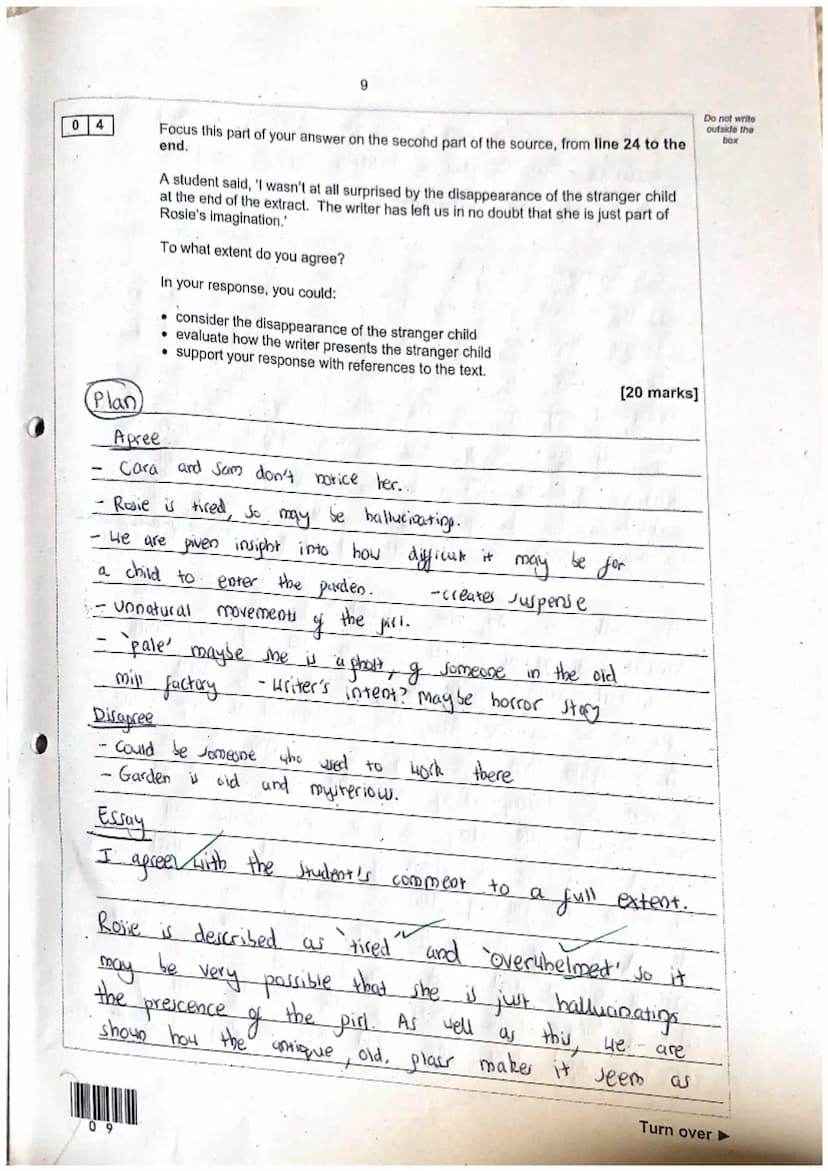 9
Do not write
outside the
box
0 4
Focus this part of your answer on the second part of the source, from line 24 to the
end.
A student said, 'I wasn't at all surprised by the disappearance of the stranger child
at the end of the extract. The writer has left us in no doubt that she is just part of
Rosie's imagination.'
To what extent do you agree?
In your response, you could:
• consider the disappearance of the stranger child
• evaluate how the writer presents the stranger child
• support your response with references to the text.
[20 marks]
Plan
Agree
- Cara and Sam don't notice her.
- Rosie is tired, so may be hallucinating.
- We are given insight into how difficult it may be for
a child to enter the garden. - creates suspense
- Unnatural movements of the girl.
- 'pale' maybe she is a ghost, of someone in the old
mill factory - Writer's intent? Maybe horror story
Disagree
- Could be someone who used to work there
- Garden is old and mysterious.
Essay
I agree with the student's comment to a full extent.
Rosie is described as 'tired' and 'overwhelmed' so it
may be very possible that she is just hallucinating
the prescence of the girl. As well as this, we are
shown how the antique, old, makes it seem as
0 9
Turn over ►